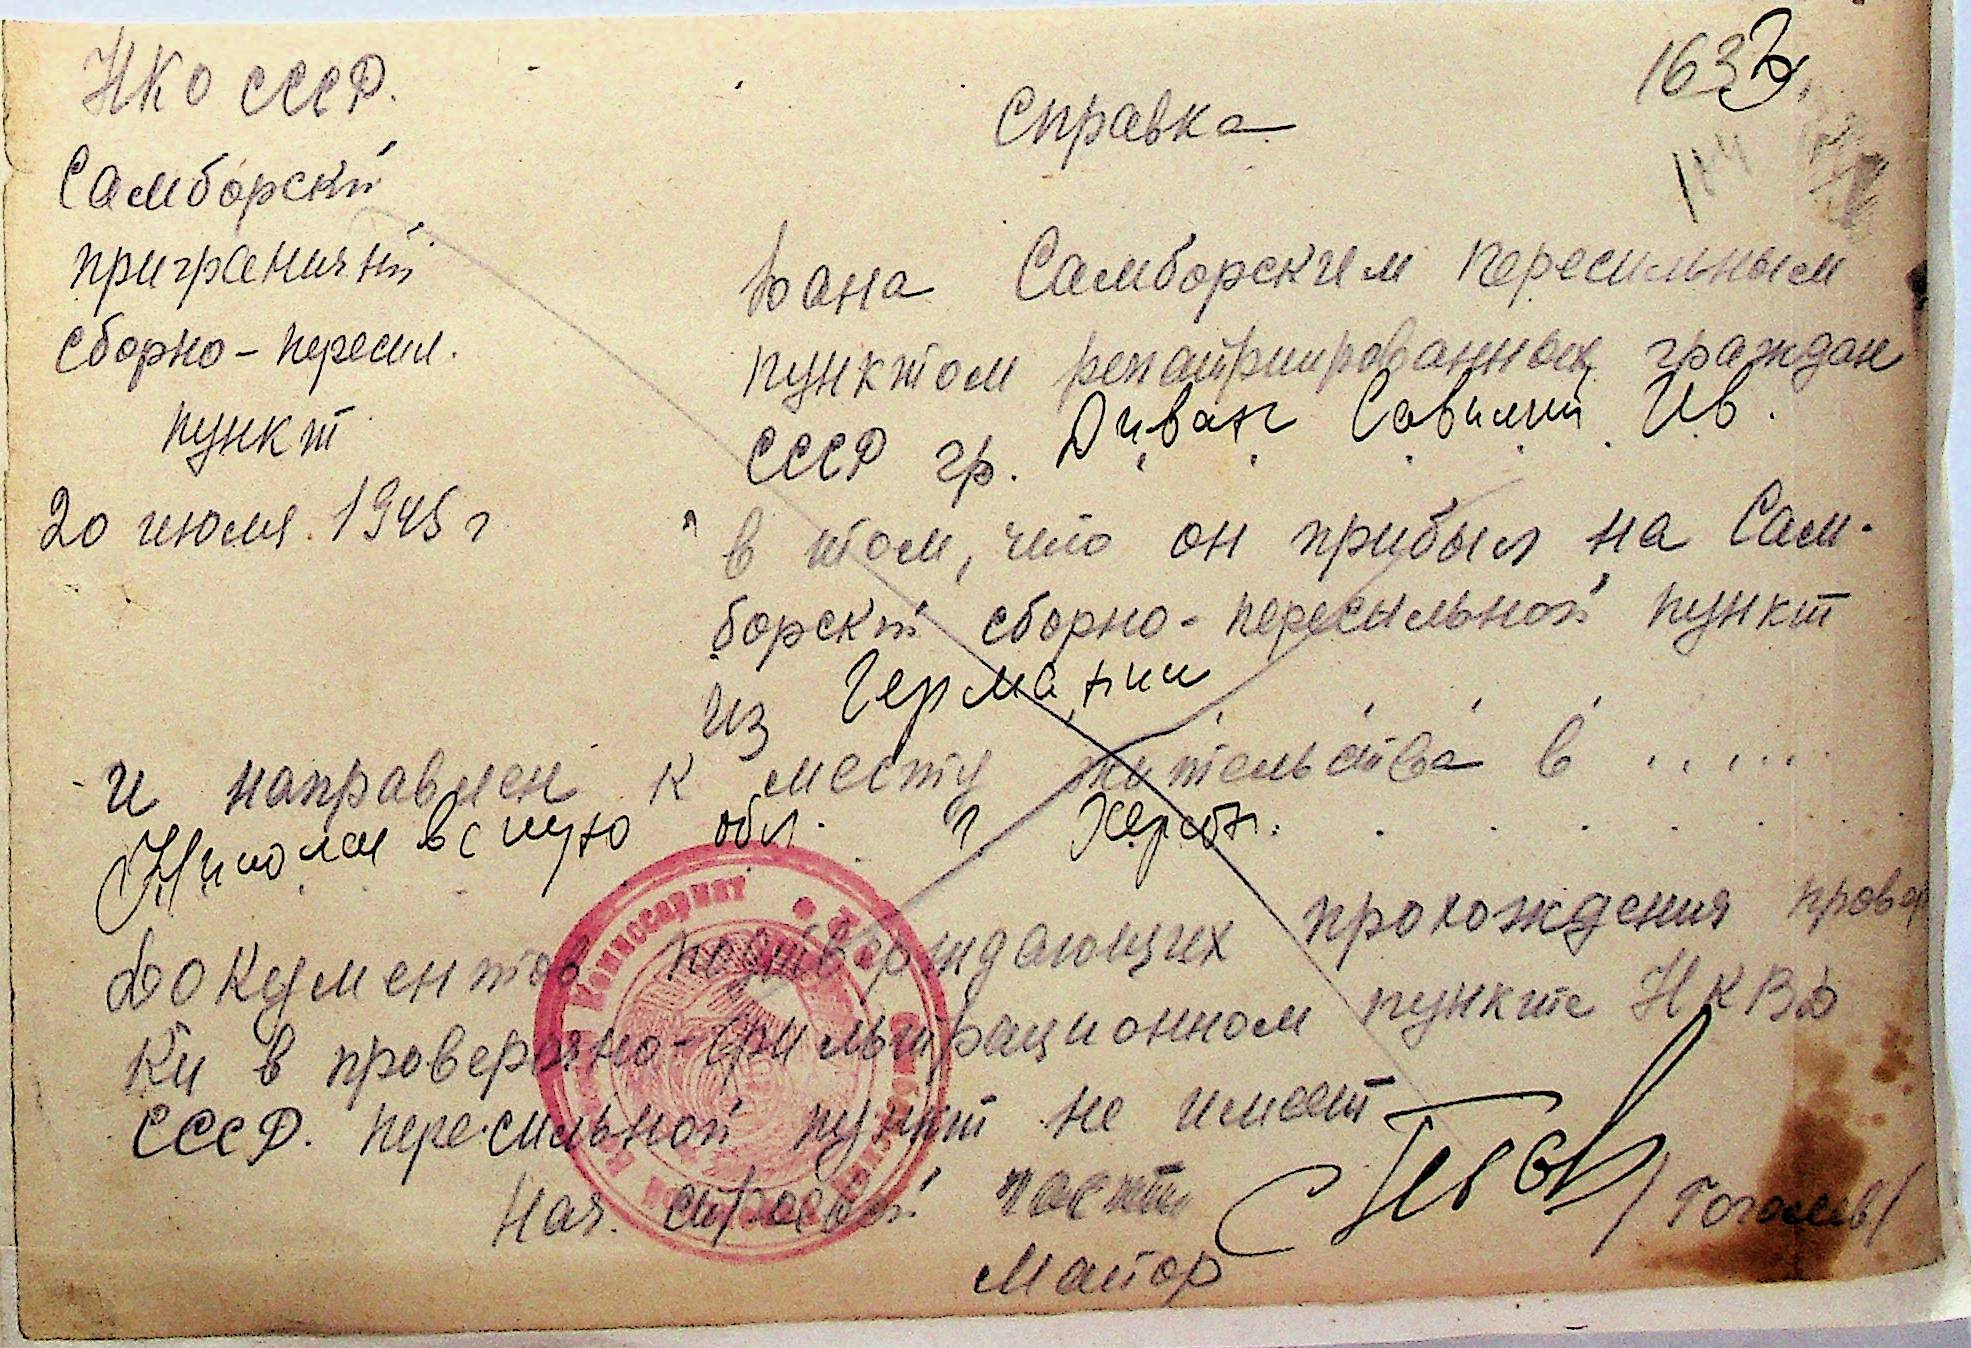 НКО СССР.
Самборский
приграничный
сборно-пересил.
пункт
20 июля 1945 г
163
Справка
Дана Самборским пересильным
пунктом репатриированных граждан
СССР гр. Диван Савелий Ив.
в том, что он прибыл на Сам-
борский сборно-пересильной пункт
из Германии
и направлен к месту жительства в ......
Николаевскую обл. г. Херсон.
Документов подтверждающих прохождения провер
ки в проверочно-фильтрационном пункте НКВД
СССР. пересильной пункт не имеет
Нач. строевой части
/Гоголев/
Майор
Комиссариат